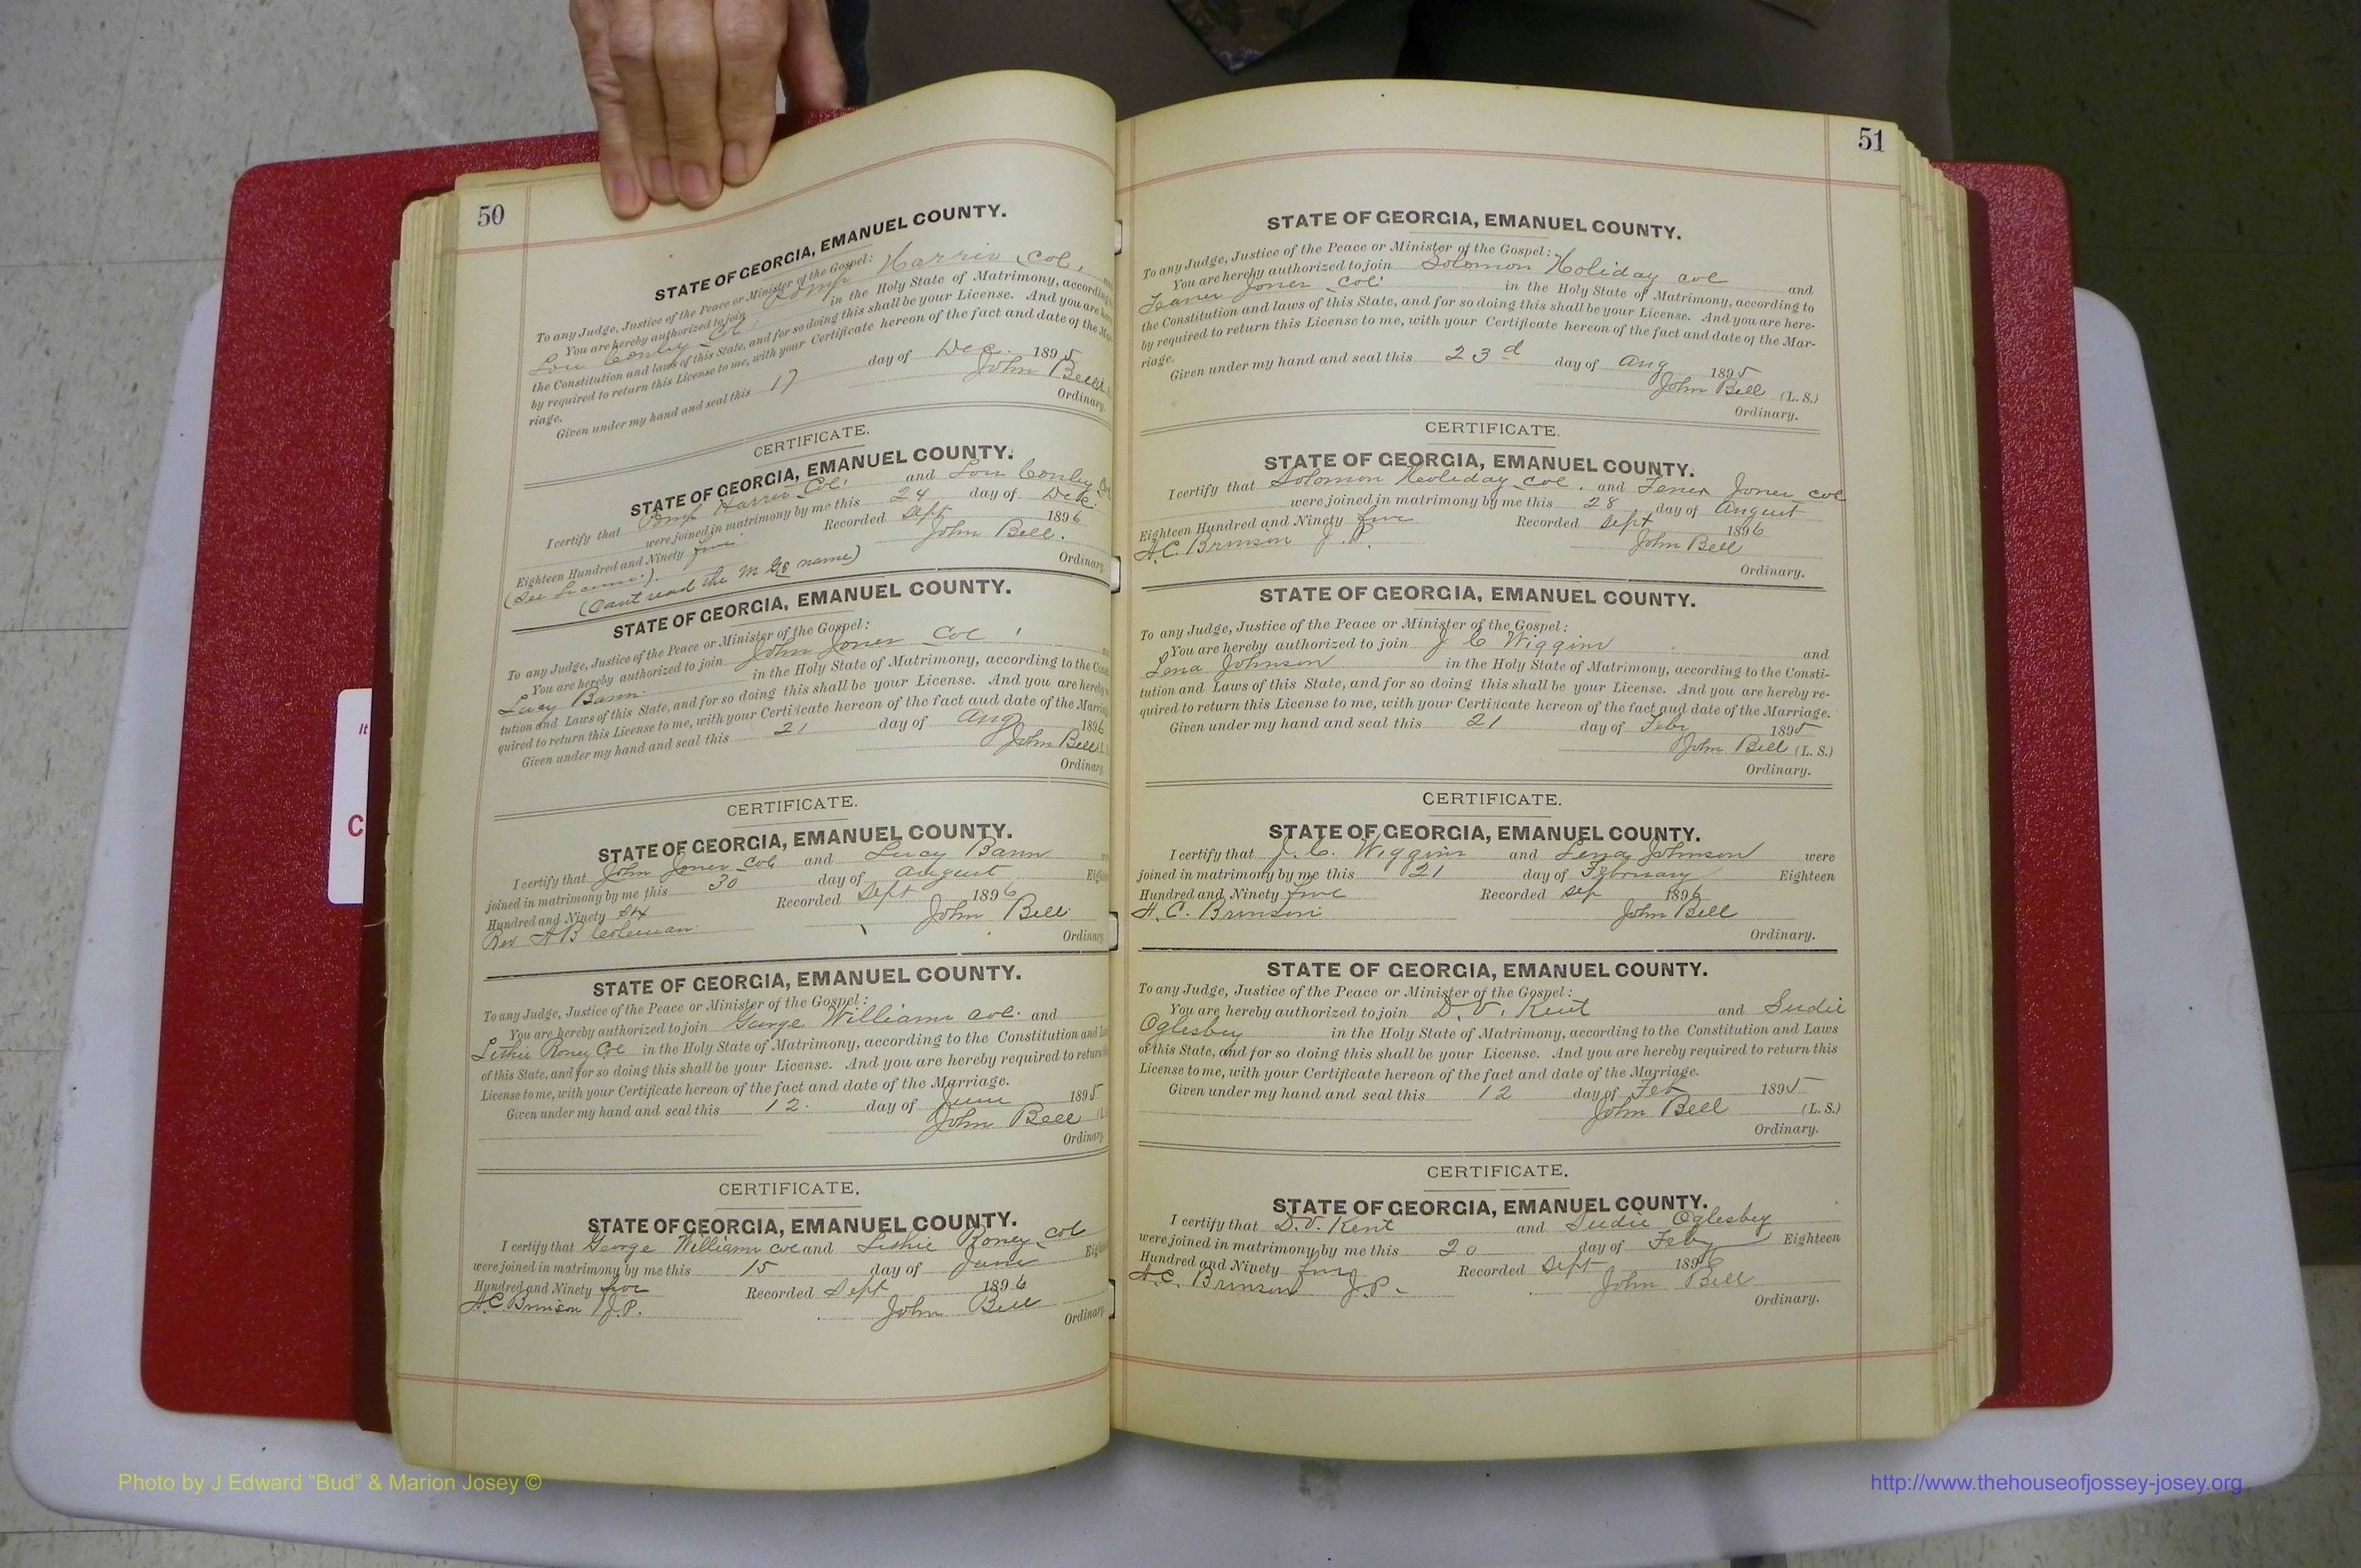 50
STATE OF GEORGIA, EMANUEL COUNTY.
To any Judge, Justice of the Peace or Minister of the Gospel:
You are hereby authorized to join Pomp Harris Col, and
Lou Conley Col, in the Holy State of Matrimony, according
the Constitution and laws of this State, and for so doing this shall be your License. And you are
by required to return this License to me, with your Certificate hereon of the fact and date of the Mar-
riage.
Given under my hand and seal this 17 day of Dec. 1895
John Bell
Ordinary.
CERTIFICATE.
STATE OF GEORGIA, EMANUEL COUNTY.
I certify that Pomp Harris Col, and Lou Conley
were joined in matrimony by me this 24 day of Dec.
Eighteen Hundred and Ninety five Recorded Sept 1896
(See License.) John Bell.
(Cant read the M Gs name) Ordinary
STATE OF GEORGIA, EMANUEL COUNTY.
To any Judge, Justice of the Peace or Minister of the Gospel:
You are hereby authorized to join John Jones Col,
Lucy Bann in the Holy State of Matrimony, according to the
tution and Laws of this State, and for so doing this shall be your License. And you are hereby
quired to return this License to me, with your Certificate hereon of the fact and date of the
Given under my hand and seal this 21 day of Aug 1896
John Bell
Ordinary
CERTIFICATE.
STATE OF GEORGIA, EMANUEL COUNTY.
I certify that John Jones Col and Lucy Bann
joined in matrimony by me this 30 day of August
Hundred and Ninety six Recorded Sept 1896
Rev A B Coleman John Bell
Ordinary
STATE OF GEORGIA, EMANUEL COUNTY.
To any Judge, Justice of the Peace or Minister of the Gospel:
You are hereby authorized to join George Williams col. and
Lethie Roney Col in the Holy State of Matrimony, according to the Constitution and
of this State, and for so doing this shall be your License. And you are hereby required to return
License to me, with your Certificate hereon of the fact and date of the Marriage.
Given under my hand and seal this 12 day of June 1895
John Bell
Ordinary
CERTIFICATE.
STATE OF GEORGIA, EMANUEL COUNTY.
I certify that George Williams col and Lethie Roney col
were joined in matrimony by me this 15 day of June
Hundred and Ninety five Recorded Sept 1896
H.C. Brinson J.P. John Bell
Ordinary
51
STATE OF GEORGIA, EMANUEL COUNTY.
To any Judge, Justice of the Peace or Minister of the Gospel:
You are hereby authorized to join Solomon Holiday col and
Jones Col in the Holy State of Matrimony, according to
the Constitution and laws of this State, and for so doing this shall be your License. And you are here-
by required to return this License to me, with your Certificate hereon of the fact and date of the Mar-
riage.
Given under my hand and seal this 23d day of Aug 1895
John Bell (L. S.)
Ordinary.
CERTIFICATE.
STATE OF GEORGIA, EMANUEL COUNTY.
I certify that Solomon Holiday col. and Jones col
were joined in matrimony by me this 28 day of August
Eighteen Hundred and Ninety five Recorded Sept 1896
H.C. Brinson J. P. John Bell
Ordinary.
STATE OF GEORGIA, EMANUEL COUNTY.
To any Judge, Justice of the Peace or Minister of the Gospel:
You are hereby authorized to join J C Wiggins and
Lena Johnson in the Holy State of Matrimony, according to the Consti-
tution and Laws of this State, and for so doing this shall be your License. And you are hereby re-
quired to return this License to me, with your Certificate hereon of the fact and date of the Marriage.
Given under my hand and seal this 21 day of Feby 1895
John Bell (L. S.)
Ordinary.
CERTIFICATE.
STATE OF GEORGIA, EMANUEL COUNTY.
I certify that J. C. Wiggins and Lena Johnson were
joined in matrimony by me this 21 day of February Eighteen
Hundred and Ninety five Recorded Sep 1896
H. C. Brinson John Bell
Ordinary.
STATE OF GEORGIA, EMANUEL COUNTY.
To any Judge, Justice of the Peace or Minister of the Gospel:
You are hereby authorized to join D. V. Kent and Sudie
Oglesbey in the Holy State of Matrimony, according to the Constitution and Laws
of this State, and for so doing this shall be your License. And you are hereby required to return this
License to me, with your Certificate hereon of the fact and date of the Marriage.
Given under my hand and seal this 12 day of Feb 1895
John Bell (L. S.)
Ordinary.
CERTIFICATE.
STATE OF GEORGIA, EMANUEL COUNTY.
I certify that D.V. Kent and Sudie Oglesbey
were joined in matrimony by me this 20 day of Feby Eighteen
Hundred and Ninety five Recorded Sept 1896
H.C. Brinson J.P. John Bell
Ordinary.
Photo by J Edward "Bud" & Marion Josey ©
http://www.thehouseofjossey-josey.org